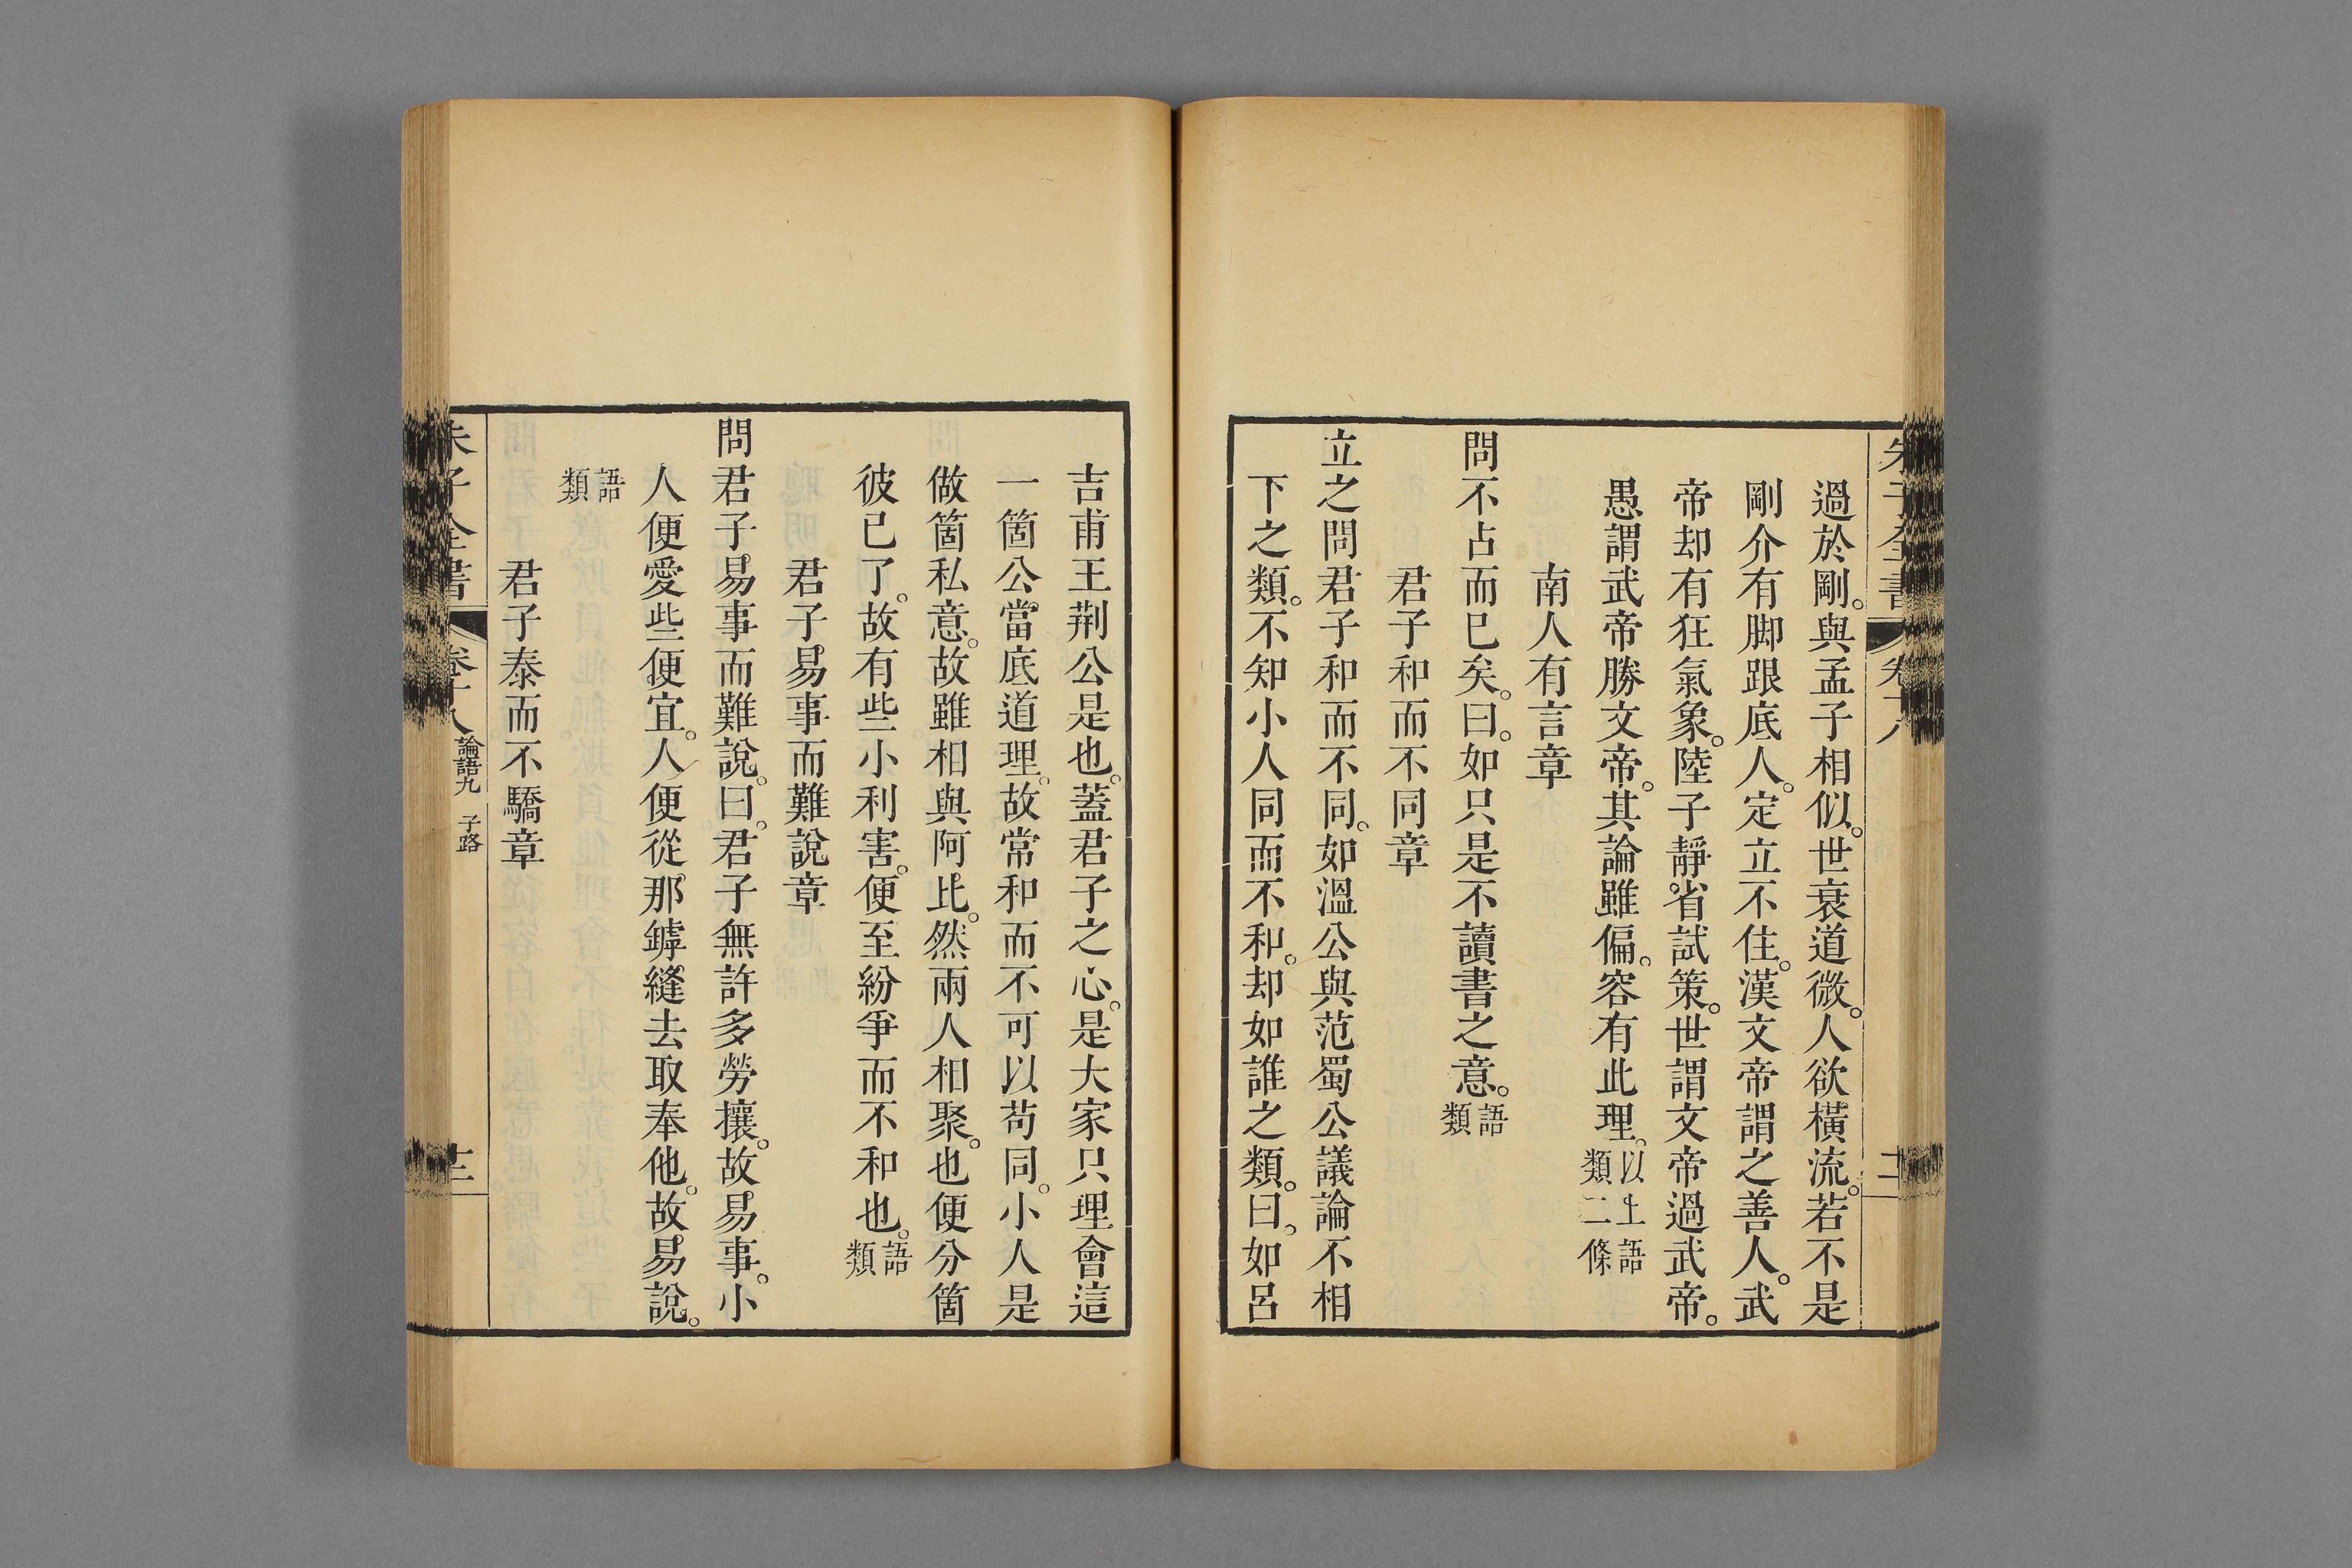 朱子全書 卷十八
過於剛。與孟子相似。世衰道微。人欲橫流。若不是
剛介有脚跟底人。定立不住。漢文帝謂之善人。武
帝却有狂氣象。陸子靜省試策。世謂文帝過武帝。
愚謂武帝勝文帝。其論雖偏。容有此理。以上語類二條
南人有言章
問不占而已矣。曰。如只是不讀書之意。語類
君子和而不同章
立之問君子和而不同。如溫公與范蜀公議論不相
下之類。不知小人同而不和。却如誰之類。曰。如呂
吉甫王荆公是也。蓋君子之心。是大家只理會這
一箇公當底道理。故常和而不可以苟同。小人是
做箇私意。故雖相與阿比。然兩人相聚。也便分箇
彼已了。故有些小利害。便至紛爭而不和也。語類
君子易事而難說章
問君子易事而難說。曰。君子無許多勞攘。故易事。小
人便愛些便宜。人便從那罅縫去取奉他。故易說。
語類
君子泰而不驕章
朱子全書 卷十八 論語九 子路